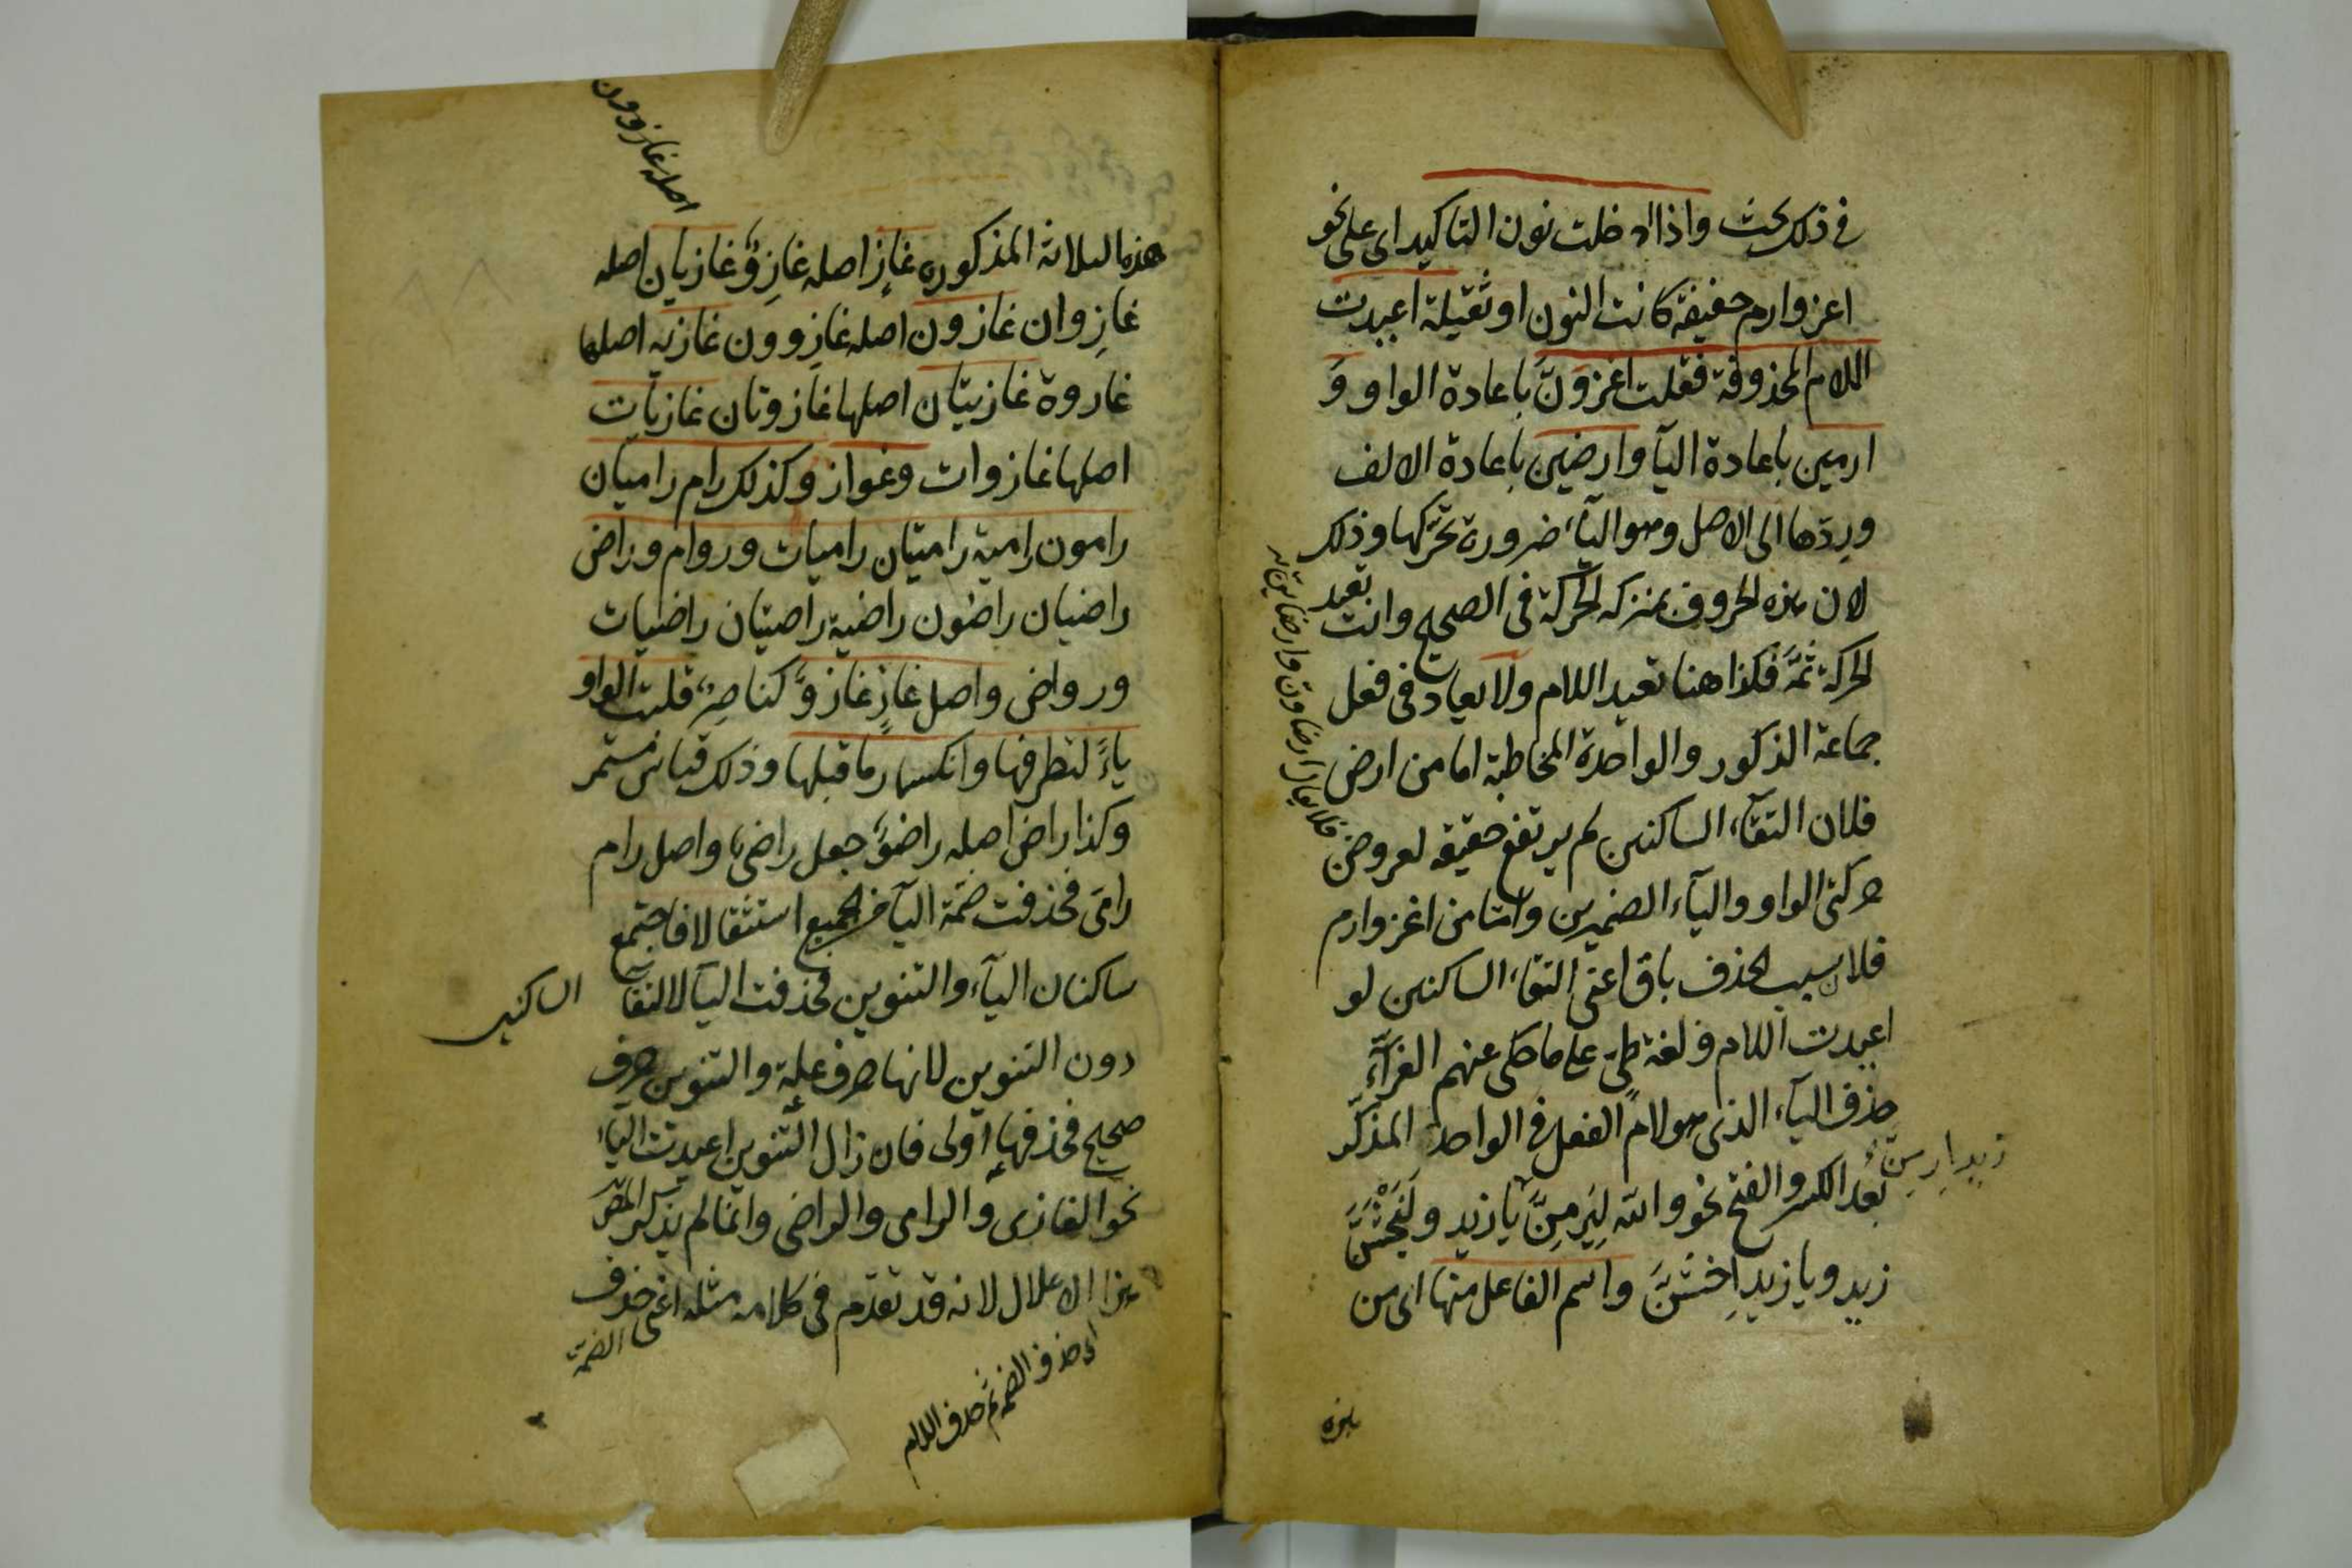 في ذلك بحث واذا ادخلت نون التاكيد اى على نحو
اغز وارم خفيفة كانت النون او ثقيلة اعيدت
اللام المحذوفة فقلت اغزونّ باعادة الواو وَ
ارمين باعادة اليآ وارضين باعادة الالف
وردّها الى الاصل وهو اليآء ضرورة تحرّكها وذلك
لان هذه الحروف بمنزلة الحركة فى الصحيح وانت تعيد
الحركة ثمّه فكذا هنا تعيد اللام ولا يعاد فى فعل
جماعة الذكور والواحدة المخاطبة اما من ارض
فلان التقآء الساكنين لم يرتفع حقيقة لعروض
حركتى الواو واليآء الضميرين وامّا من اغز وارم
فلان سبب الحذف باق اعنى التقاء الساكنين لو
اعيدت اللام و لغة طىّ على ما حكى عنهم الفرّآءِ
حذف اليآء الذى هو لام الفعل فى الواحد المذكّر
بعد الكسر والفتح نحو والله ليَرمِنَّ يا زيد وليَخْشَنَّ
زيد ويا زيد اِخشَنَّ واسم الفاعل منها اى من
هذه
فلا يقال ارضاون وارضاين
زيد ارمِنّ
هذه الثلاثة المذكوره غازٍ اصله غازِوٌ غازيان اصله
غازِوان غازون اصله غازِوون غازية اصلها
غازوة غازيتان اصلها غازوتان غازيات
اصلها غازوات وغواز وكذلك رام راميان
رامون رامية راميتان راميات وروام وراض
راضيان راضون راضية راضيتان راضيات
ورواض واصل غازٍ غازوٌ كناصِرٌ قلبت الواو
ياءً لتطرفها وانكسار ما قبلها وذلك قياس مستمر
وكذا راض اصله راضوٌ جعل راضىٌ واصل رام
رامىٌ فحذفت ضمّة اليآ فى الجميع استثقالا فاجتمع
ساكنان اليآء والتنوين فحذفت اليآ لالتقآء الساكنين
دون التنوين لانها حرف علة والتنوين حرف
صحيح فحذفها اولى فان زال التنوين اعيدت الياء
نحو الغازى والرامى والراضى وانّما لم يذكر المصّ
هذا الاعلال لانه قد تقدّم فى كلامه مثله اعنى حذف
الضمّة
اى حذف الضمة ثم حذف اللام
اصله غازوون